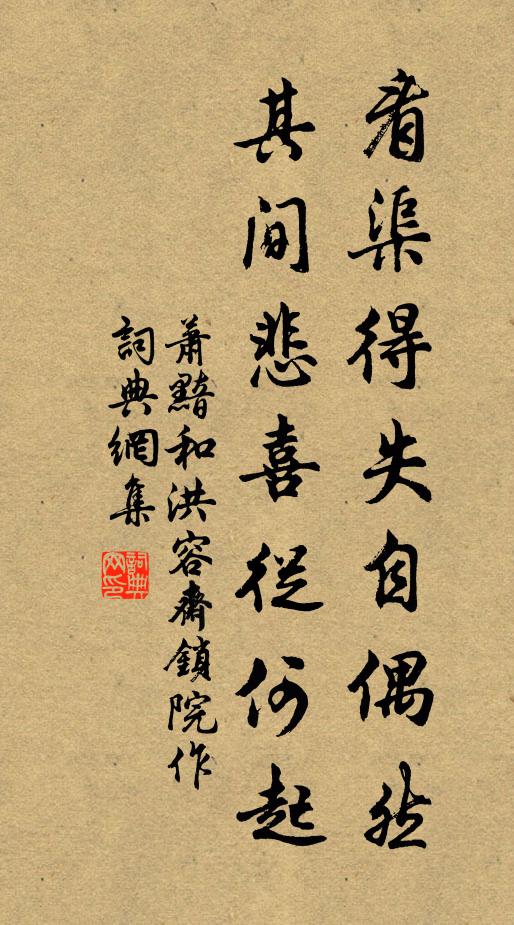 看渠得失自偶然
其間悲喜從何起
蕭黯和洪容齋鎖院作
詞典網集
詞典網印